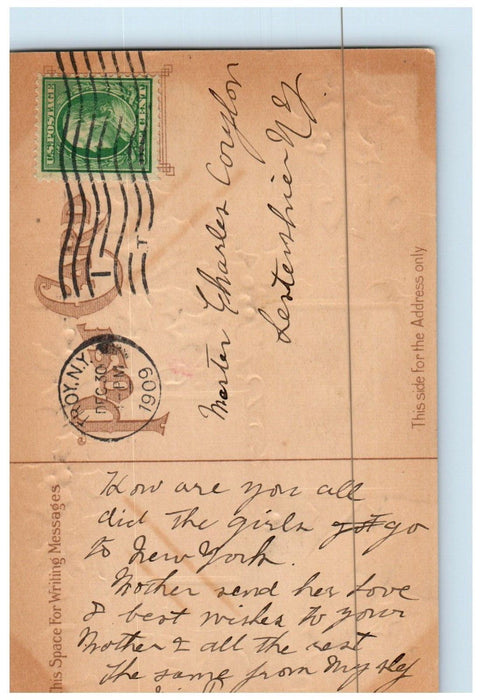 U.S. POSTAGE
POST CARD
TROY, N.Y.
DEC 30
M
1909
Master Charles
Lestershire N.Y.
This side for the Address only
This Space For Writing Messages
How are you all
did the girls got go
to New York.
Mother send her Love
& best wishes to your
Mother & all the rest
the same from My self